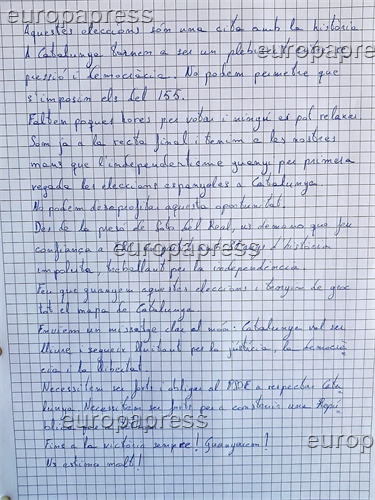 europapress
Aquestes eleccions són una cita amb la història
A Catalunya tornem a ser un plebiscit entre re
europapress
pressió i democràcia. No podem permetre que
s'imposin els del 155.
Falten poques hores per votar i ningú es pot relaxar
Som ja a la recta final i tenim a les nostres
mans que l'independentisme guanyi per primera
vegada les eleccions espanyoles a Catalunya.
No podem desaprofitar aquesta oportunitat.
Des de la presó de Soto del Real, us demano que feu
confiança a d'història
europapress
impoluta, treballant per la independència.
Feu que guanyem aquestes eleccions i tenyim de groc
tot el mapa de Catalunya
Enviem un missatge clar al món: Catalunya vol ser
lliure i segueix lluitant per la justícia, la democrà
cia i la llibertat.
Necessitem ser forts i obligar al PSOE a respectar Cata
lunya. Necessitem ser forts per a construir una Repú
blica
europapress
Fins a la victòria sempre! Guanyarem!
europapress
Us estimo molt!